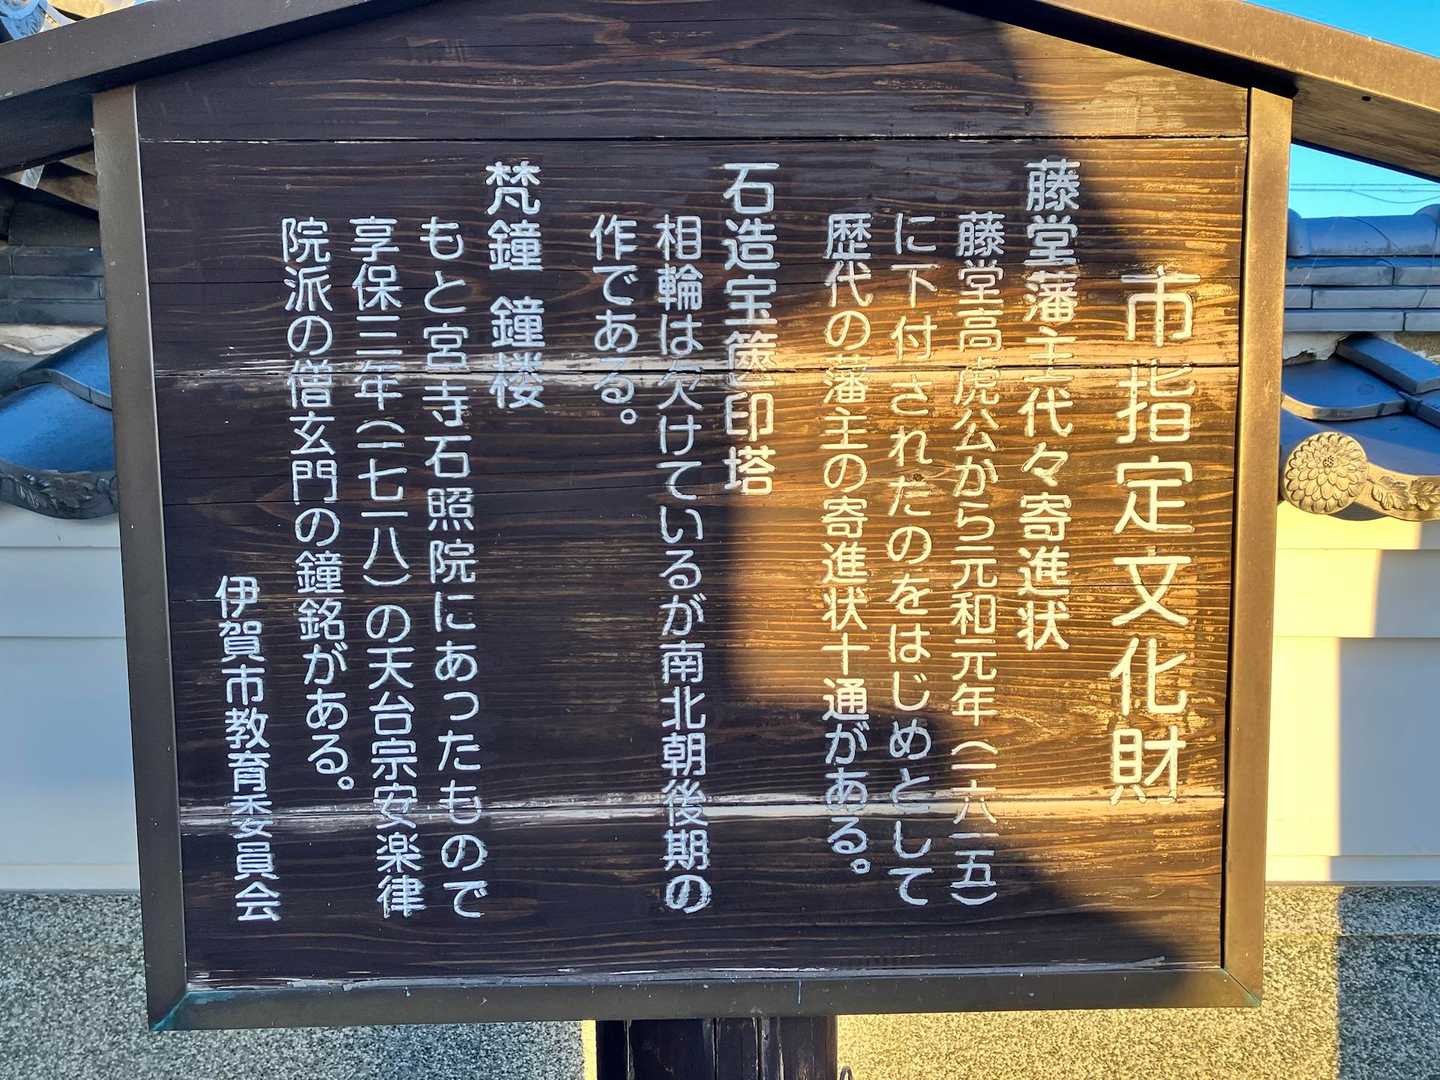 市指定文化財
藤堂藩主代々寄進状
藤堂高虎公から元和元年(一六一五)
に下付されたのをはじめとして
歴代の藩主の寄進状十通がある。
石造宝篋印塔
相輪は欠けているが南北朝後期の
作である。
梵鐘 鐘楼
もと宮寺石照院にあったもので
享保三年(一七一八)の天台宗安楽律
院派の僧玄門の鐘銘がある。
伊賀市教育委員会